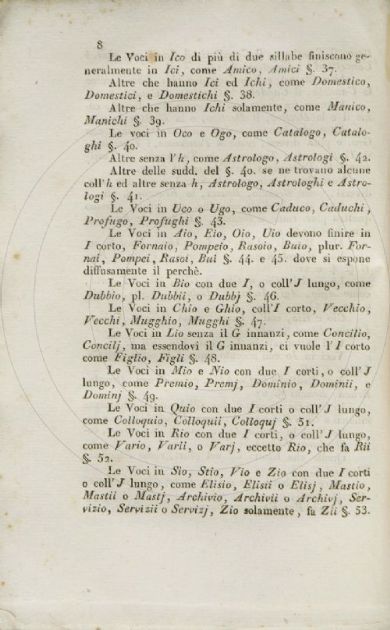 8
Le Voci in Ico di più di due sillabe finiscono ge-
neralmente in Ici, come Amico, Amici §. 37.
Altre che hanno Ici ed Ichi, come Domestico,
Domestici, e Domestichi §. 38.
Altre che hanno Ichi solamente, come Manico,
Manichi §. 39.
Le voci in Oco e Ogo, come Catalogo, Catalo-
ghi §. 40.
Altre senza l'h, come Astrologo, Astrologi §. 42.
Altre delle sudd. del §. 40. se ne trovano alcune
coll'h ed altre senza h, Astrologo, Astrologhi e Astro-
logi §. 41.
Le Voci in Uco o Ugo, come Caduco, Caduchi,
Profugo, Profughi §. 43.
Le Voci in Aio, Eio, Oio, Uio devono finire in
I corto, Fornaio, Pompeio, Rasoio, Buio, plur. For-
nai, Pompei, Rasoi, Bui §. 44. e 45. dove si espone
diffusamente il perchè.
Le Voci in Bio con due I, o coll'J lungo, come
Dubbio, pl. Dubbii, o Dubbj §. 46.
Le Voci in Chio e Ghio, coll'I corto, Vecchio,
Vecchi, Mugghio, Mugghi §. 47.
Le Voci in Lio senza il G innanzi, come Concilio,
Concilj, ma essendovi il G innanzi, ci vuole l'I corto
come Figlio, Figli §. 48.
Le Voci in Mio e Nio con due I corti, o coll'J
lungo, come Premio, Premj, Dominio, Dominii, e
Dominj §. 49.
Le Voci in Quio con due I corti o coll'J lungo,
come Colloquio, Colloquii, Colloquj §. 51.
Le Voci in Rio con due I corti, o coll'J lungo,
come Vario, Varii, o Varj, eccetto Rio, che fa Rii
§. 52.
Le Voci in Sio, Stio, Vio e Zio con due I corti
o coll'J lungo, come Elisio, Elisii o Elisj, Mastio,
Mastii o Mastj, Archivio, Archivii o Archivj, Ser-
vizio, Servizii o Servizj, Zio solamente, fa Zii §. 53.